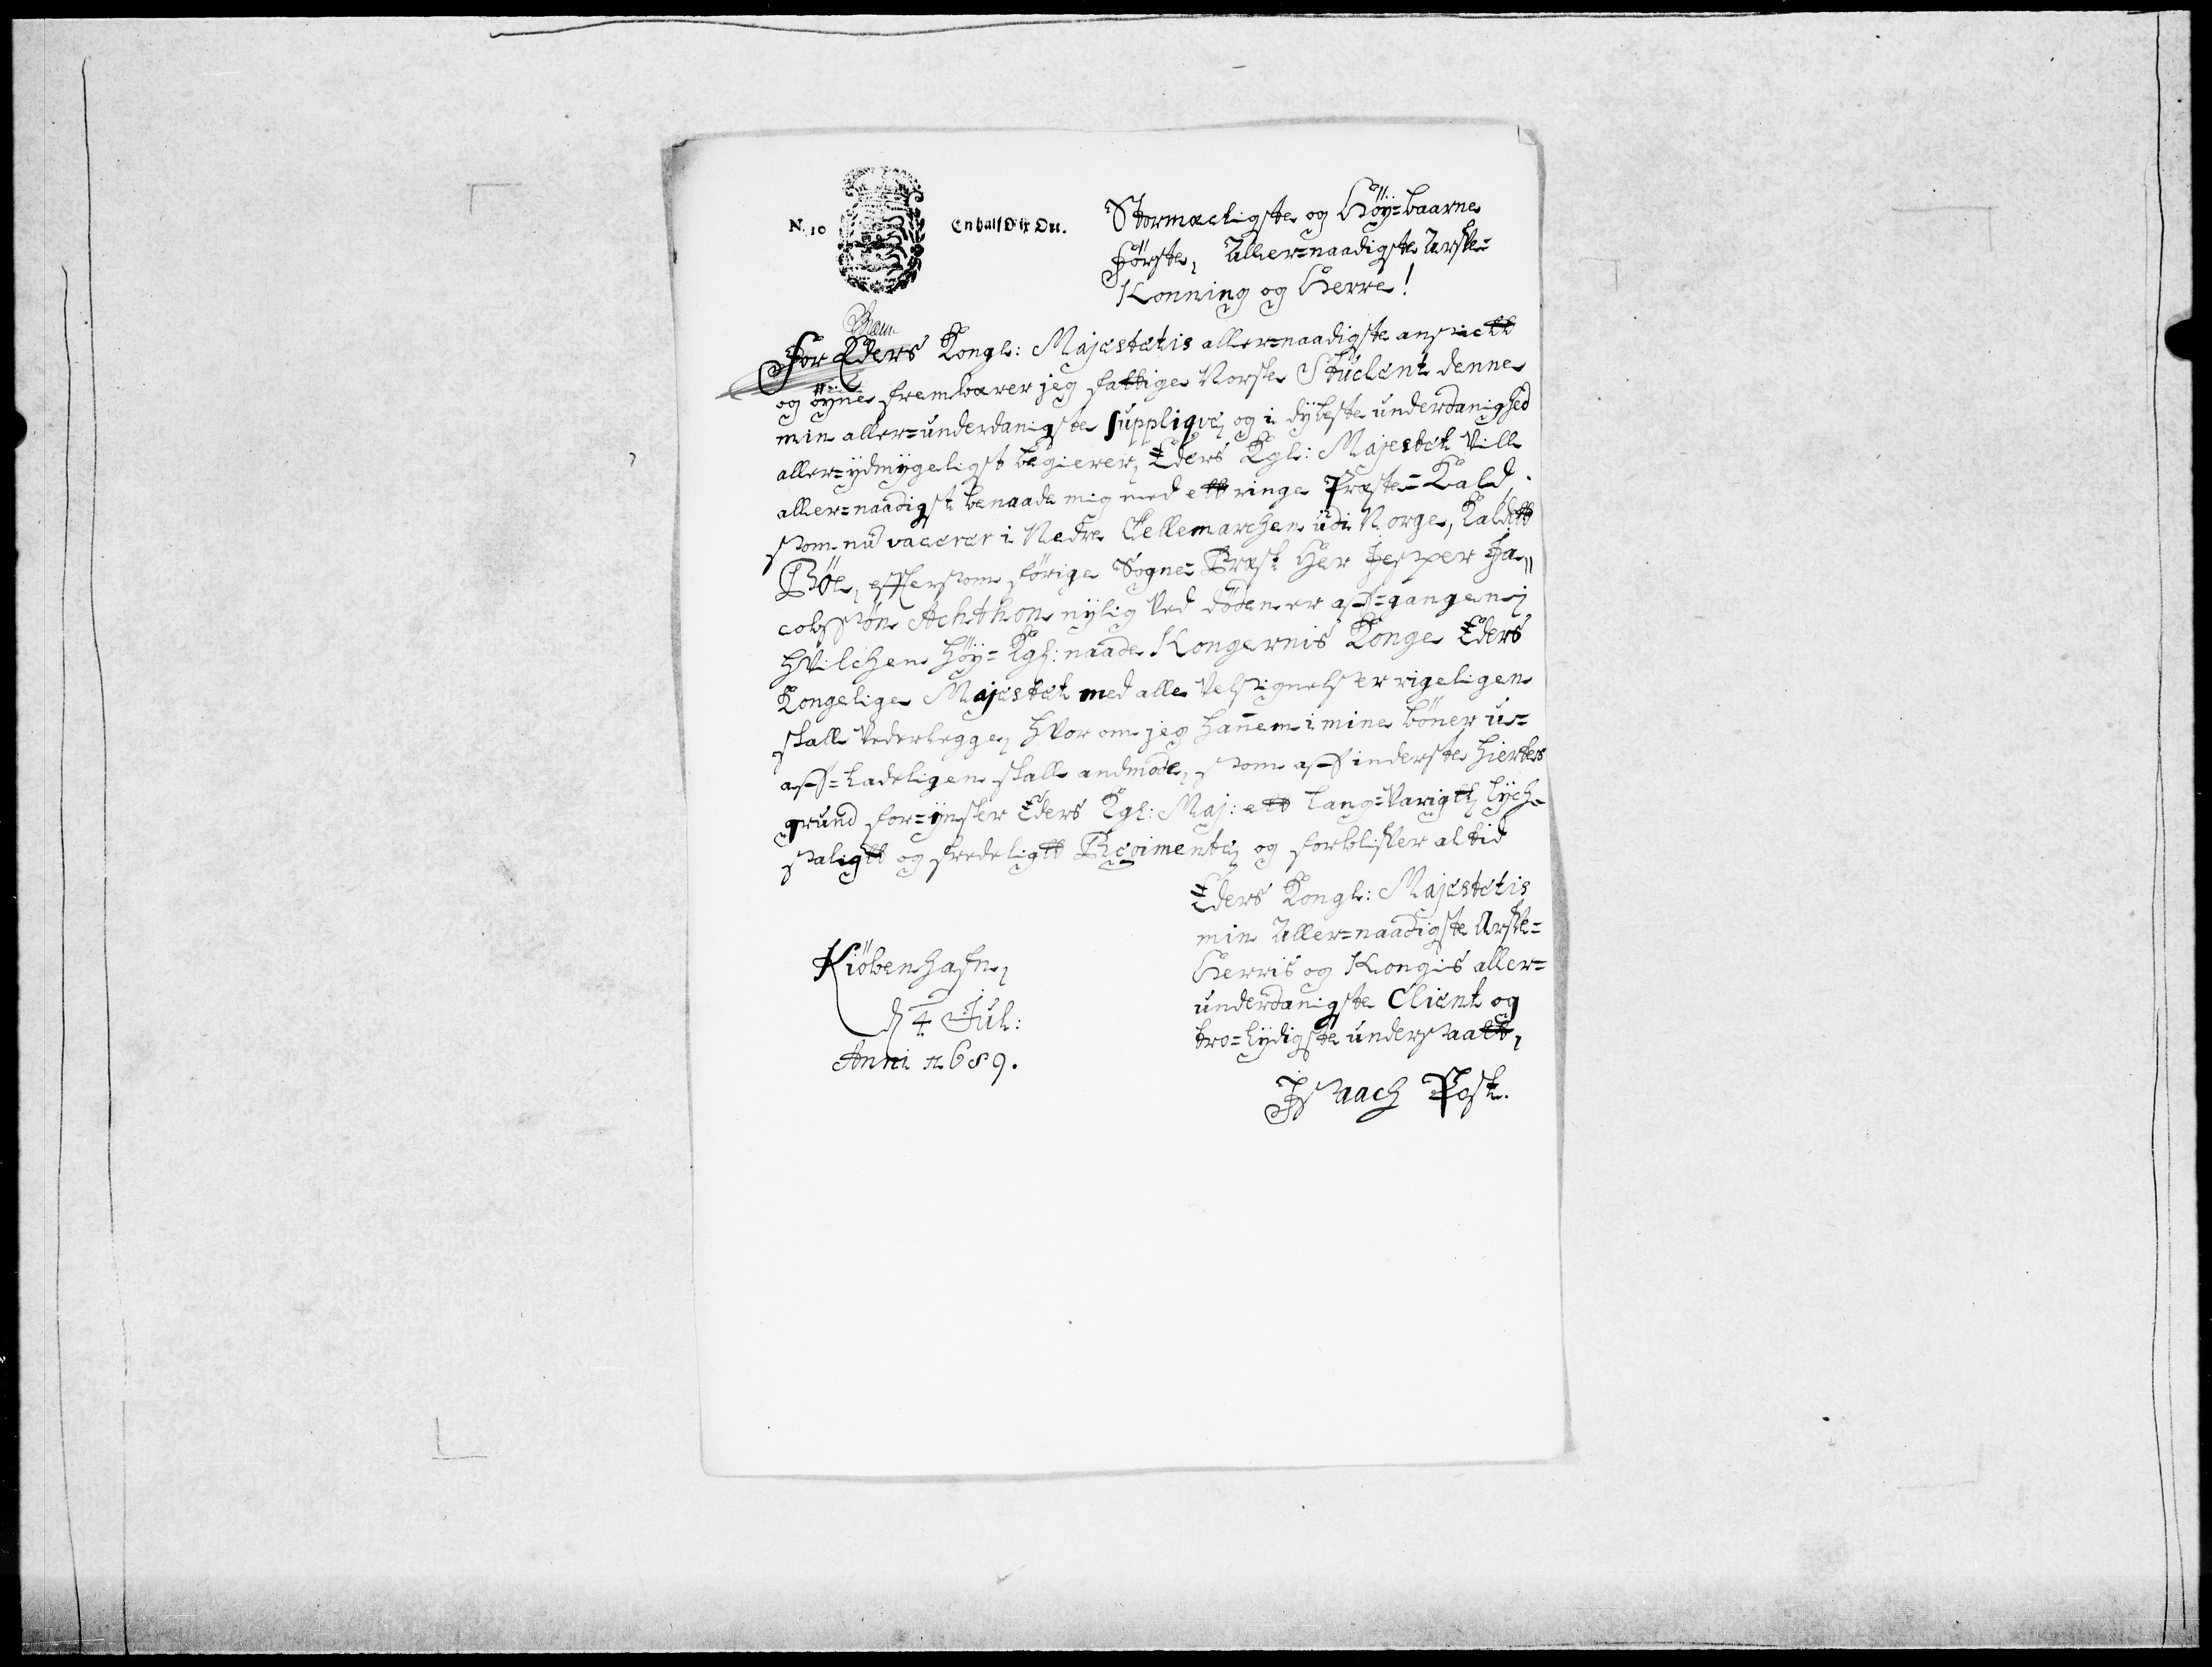 N. 10 En half Dlr Dn.
Stormæctigste og Höy=baarne
Förste, Aller=naadigste Arffve=
Konning og Herre!
For Eders Kongl: Majestetis aller=naadigste ansictt
og öÿne frembærer jeg fattige Norske Student denne
min aller=underdanigste suppliqve, og i dÿbeste underdanighed
aller=ydmygeligst begierer, Eders Kgl: Majestet Ville
aller=naadigst benaade mig med ett ringe Præste=Kald,
som nu vacerer i Nedre Tellemarchen udi Norge, Kaldett
Böe, effter som forige Sogne=Præst Her Jesper Ja„
cobssön Achthon nÿlig Ved döden er aff=gangen,
hVilchen Höy=Kgl: naade Kongernis Konge Eders
Kongelige Majestet med alle Velsignelser rigeligen
skall Vederlegge, hVor om jeg hannem i mine böner u=
aff=ladeligen skall andmode, som aff inderste hiertes
grund for=ÿnsker Eders Kgl: Maj: ett lang=Varigtt, lÿch=
saligtt og fredeligtt Regimente, og forbliffver altid
Eders Kongl: Majestetis
min Aller=naadigste Arffve=
Herris og Kongis aller=
underdanigste Client og
tro=lÿdigste undersaatt,
Isaach Post.
Kiöbenhafn,
d 4 Jul:
Anni 1689.